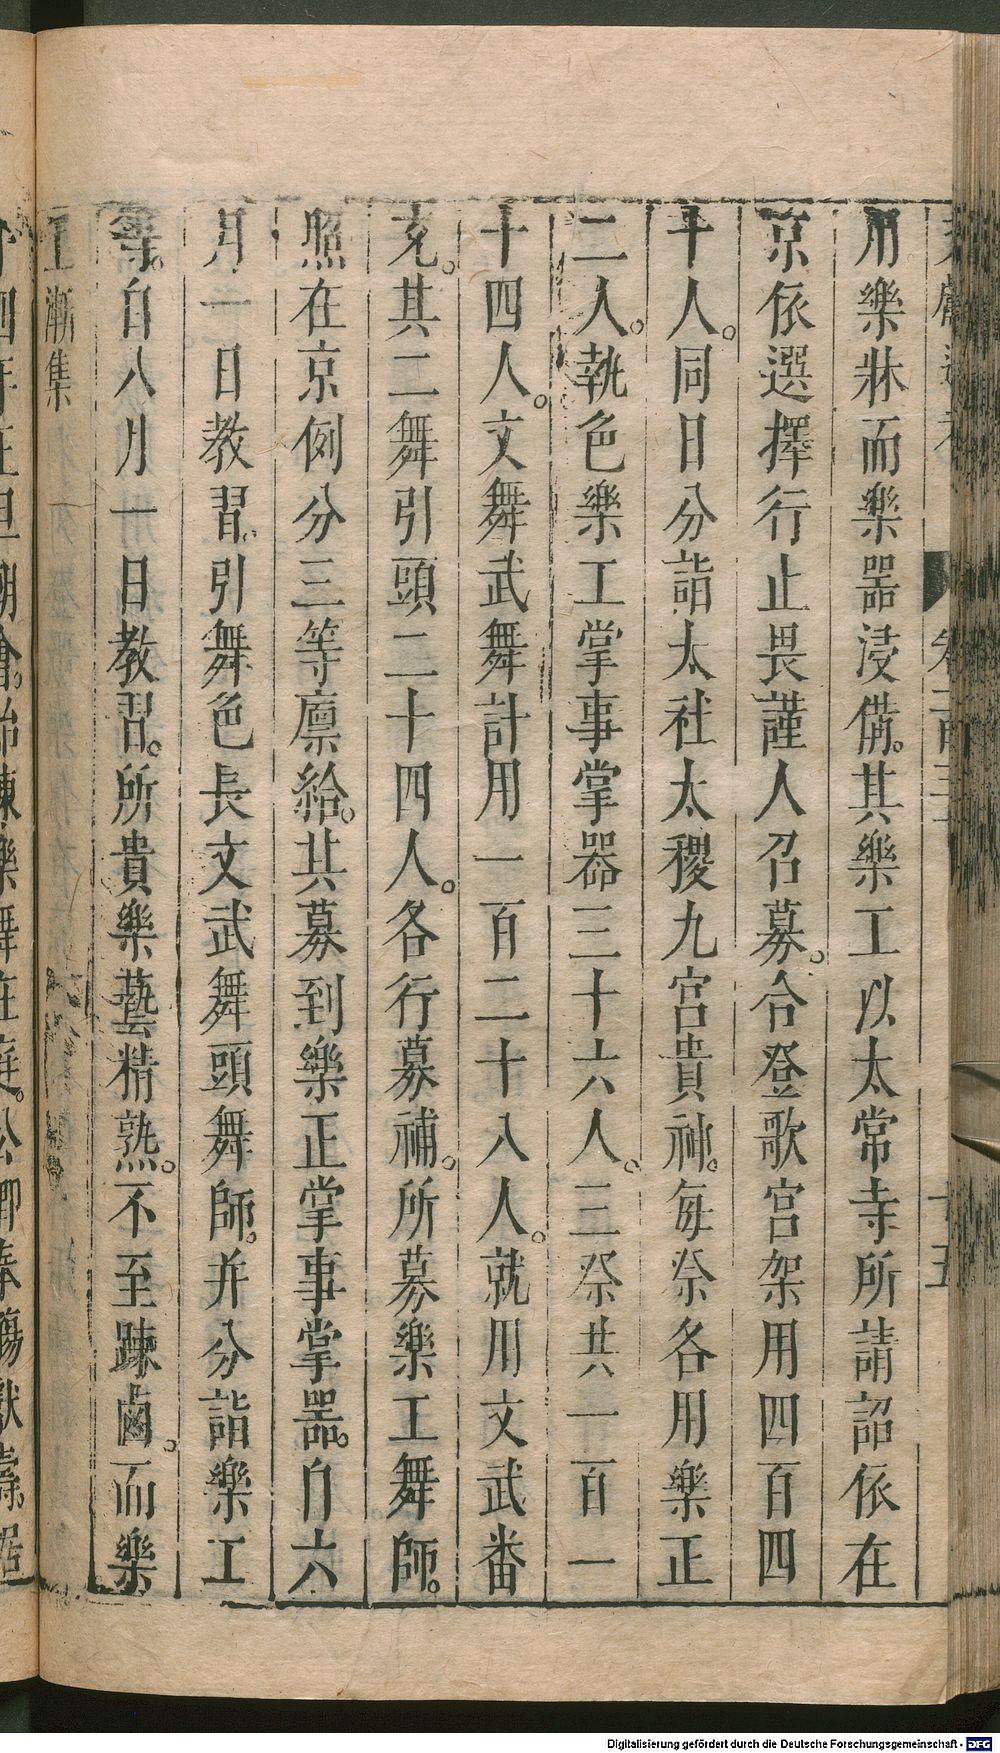 用樂牀而樂器浸備。其樂工以太常寺所請詔依在
京依選擇行止畏謹人召募。合登歌宮架用四百四
十人。同日分詣太社太稷九宮貴神。每祭各用樂正
二人。執色樂工掌事掌器三十六人。三祭共一百一
十四人。文舞武舞計用一百二十八人。就用文武番
充。其二舞引頭二十四人。各行募補。所募樂工舞師。
照在京例分三等廪給。其募到樂正掌事掌器。自六
月一日教習。引舞色長文武舞頭舞師。并分詣樂工
等。自八月一日教習。所貴樂藝精熟。不至踈鹵。而樂
工漸集
卷二百三
十五
Digitalisierung gefördert durch die Deutsche Forschungsgemeinschaft - DFG